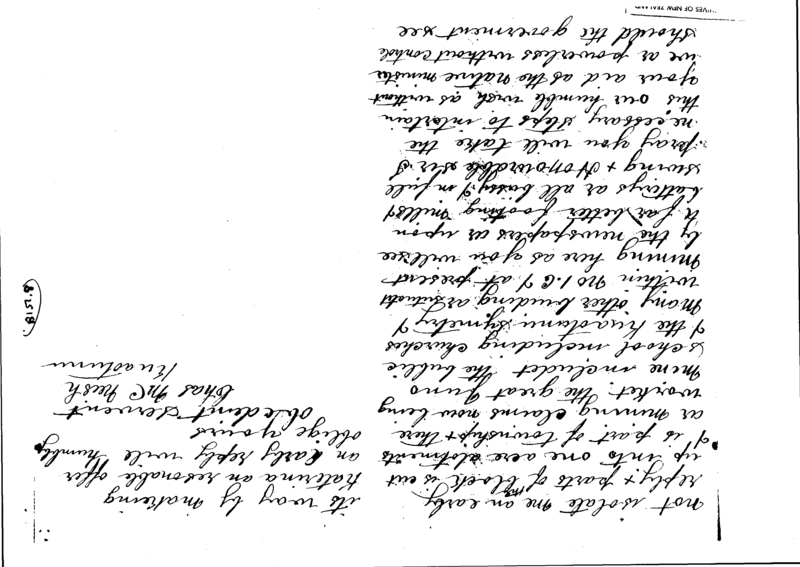 not isolate me an early
reply & parts of the block is cut
up into one acre alotments
& is part of township & there
ar mining claims now being
worket. the great Juno
mine includet the public
school including churches
& the Kuaotunu Symetry &
Many other buiding ar situatet
within No 1.C & at present
Mining here as you will see
by the newspapers ar upon
a far better footing mills &
batterys ar all bussy & in full
swing & Honourable sir I
pray you will take the
necessary steps to intertain
this our humble wish as without
your aid as the native minister
we ar powerless without controle
should the goverment see
its way by making
Katerina an resonable offer
an Early reply will humbly
oblige yours
obledent servent
Chas McNeish
Kuaotunu
IVES OF NEW ZEALAND